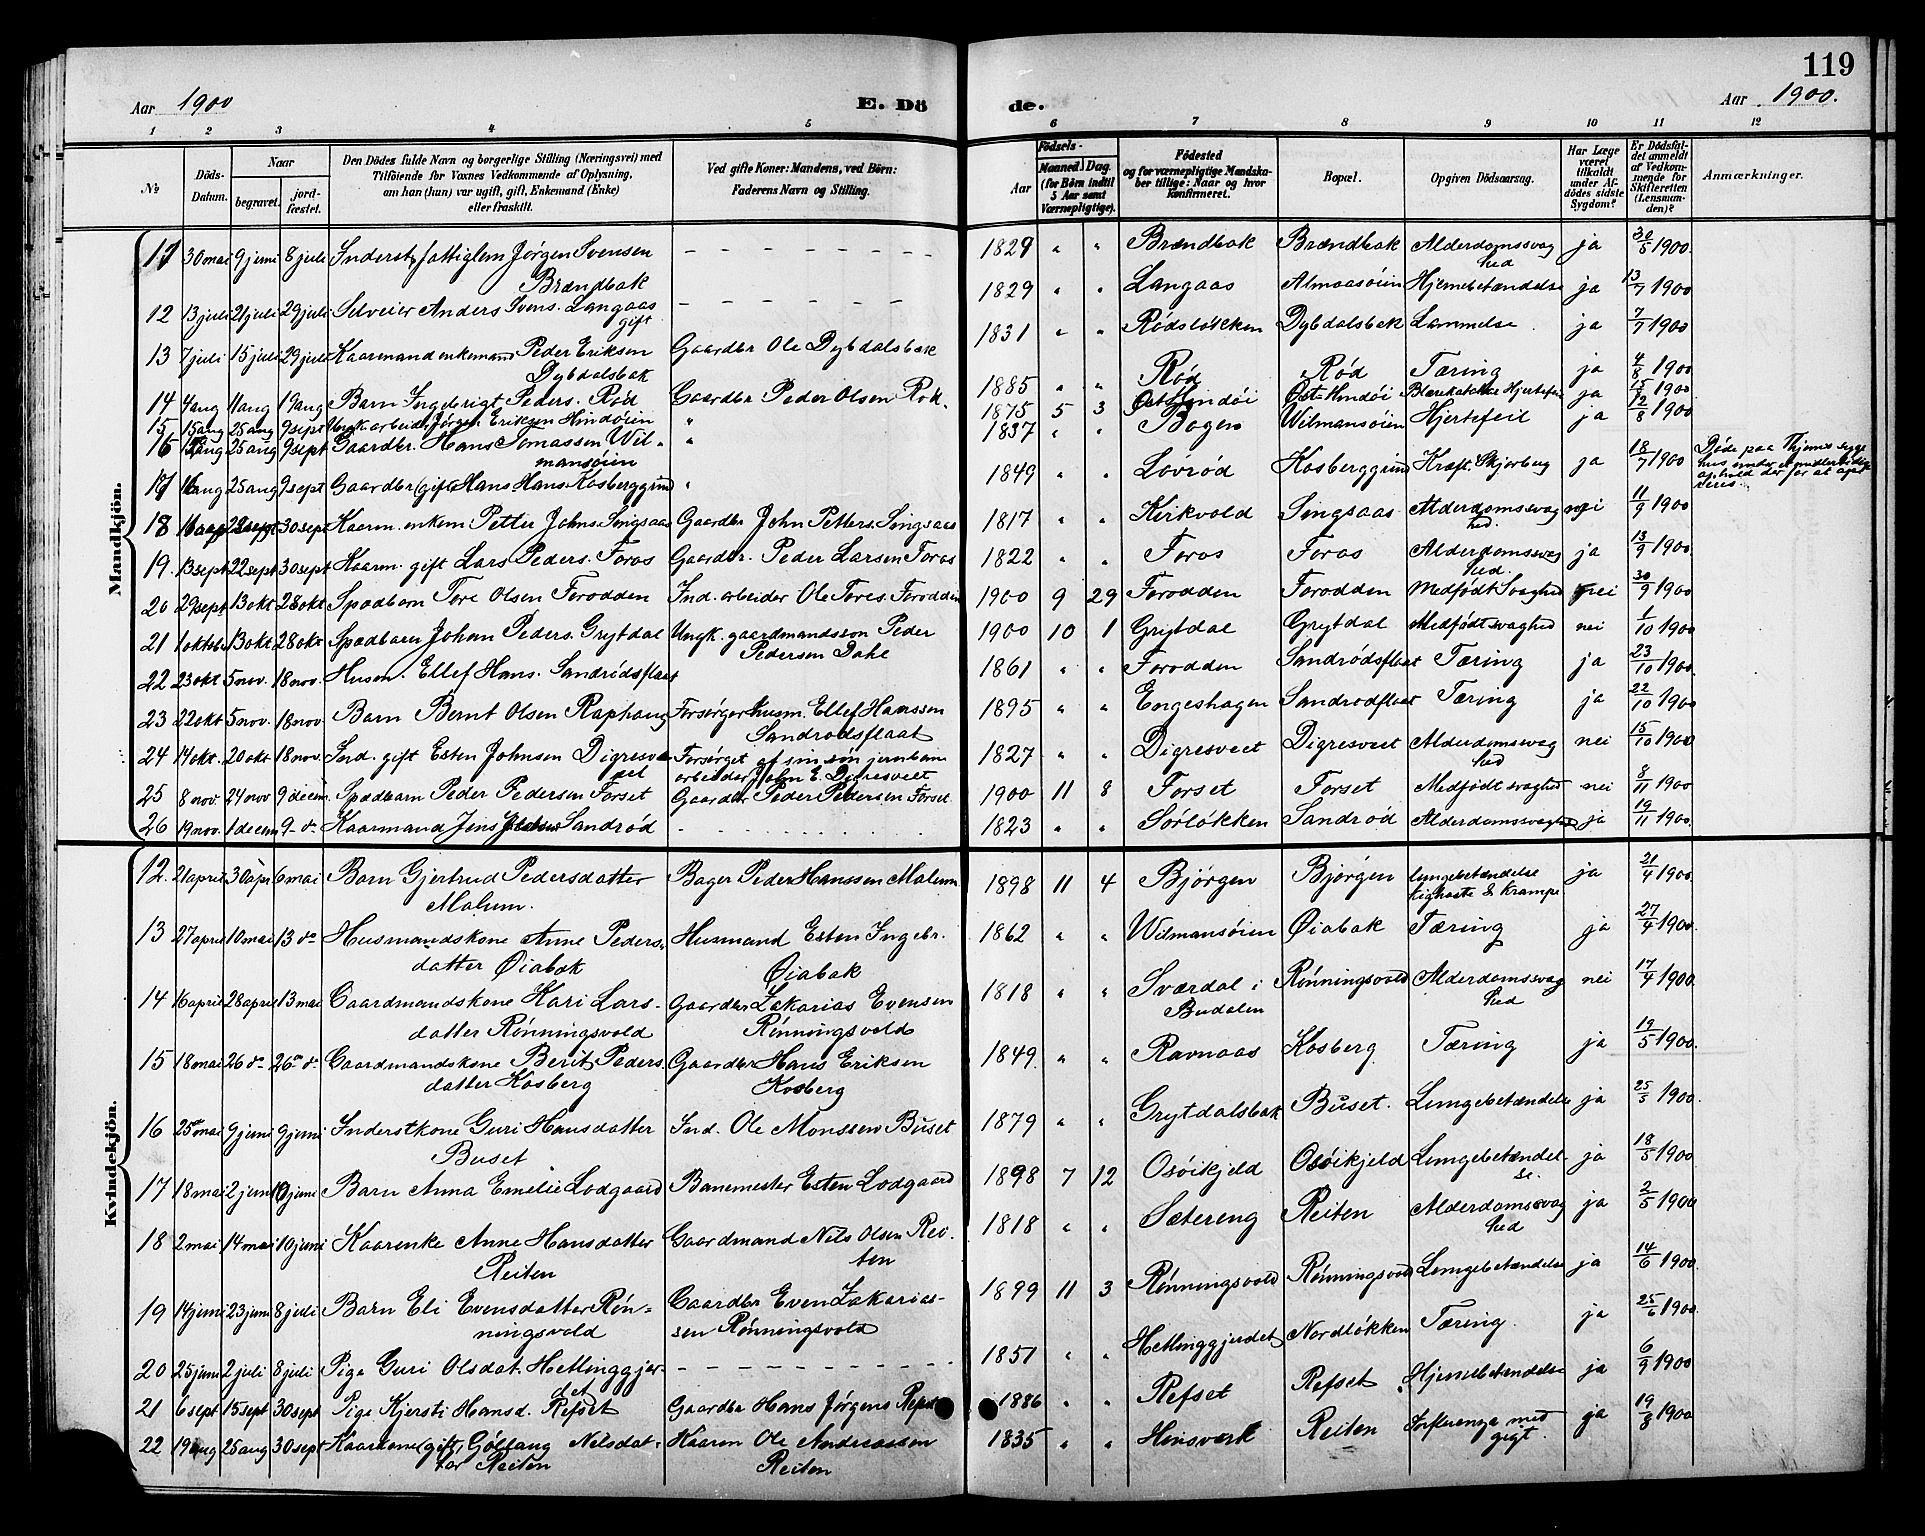 119
Aar 1900
E. Dö
de.
Aar 1900.
1 2 3 4 5 6 7 8 9 10 11 12
№
Döds-Datum.
Naar
begravet.
jordfæstet.
Den Dödes fulde Navn og borgerlige Stilling (Næringsvei) med
Tilföiende for Voxnes Vedkommende af Oplysning,
om han (hun) var ugift, gift, Enkemand (Enke)
eller fraskilt.
Ved gifte Koner: Mandens, ved Börn:
Faderens Navn og Stilling.
Födsels-
Aar
Maaned. Dag.
(for Börn indtil
5 Aar samt
Værnepligtige).
Födested
og for værnepligtige Mandskaber tillige: Naar og hvor
konfirmeret.
Bopæl.
Opgiven Dödsaarsag.
Har Læge
været
tilkaldt
under Afdödes sidste
Sygdom?
Er Dödsfaldet anmeldt
af Vedkommende for
Skifteretten
(Lensmanden)?
Anmærkninger.
Mandkjön.
11 30 mai 9 juni 8 juli Inderst, fattiglem Jørgen Svensen Brændbak – – – 1829 " " Brændbak Brændbak Alderdomssvaghed ja 30/5 1900.
12 13 juli 21 juli 29 juli Selveier Anders Svens. Langaas gift – – – 1829 " " Langaas Almaasøien Hjernebetændelse ja 13/7 1900
13 7 juli 15 juli 29 juli Kaarmand enkemand Peder Eriksen Dybdalsbak Gaardbr Ole Dybdalsbak 1831 " " Rødsløkken Dybdalsbak Lammelse ja 7/7 1900
14 4 aug 11 aug 19 aug Barn Ingebrigt Peders. Rød Gaardbr Peder Olsen Rød. 1885 " " Rød Rød Tæring ja 4/8 1900
15 15 aug 25 aug 9 sept Ungk. arbeid. Jørgen Eriksen Hindøien " 1875 5 3 Øst-Hindøi Øst-Hindøi Hjertefeil ja 15/8 1900
16 12 aug 25 aug 9 sept Gaardbr. Hans Tomassen Wilmansøien " 1837 " " Bogen Wilmansøien Hjertefeil ja 12/8 1900
17 aug 25 aug 9 sept Gaardbr (gift) Hans Hans. Kosberggrind " 1849 " " Løvrød Kosberggrind Kræft ja 18/7 1900 Døde paa
18 sept 30 sept Kaarm. enkem Petter Johns. Singsaas Gaardbr John Petters. Singsaas 1817 " " Kirkvold Singsaas Alderdomssvaghed. nei 11/9 1900
19. 13 sept 22 sept 30 sept Kaarm. gift Lars Peders. Foros Gaardbr. Peder Larsen Foros 1822 " " Foros Foros Alderdomssvaghed. ja 13/9 1900.
20 29 sept 13 okt 28 okt Spædbarn Tore Olsen Forodden Ind. arbeider Ole Tores. Forodden 1900 9 29 Forodden Forodden Medfødt Svaghed nei 30/9 1900
21 1 oktober 13 okt 28 okt Spædbarn Johan Peders. Grytdal Ungk. gaardmandssøn Peder Pedersen Dahl 1900 10 1 Grytdal Grytdal Medfødt svaghed nei 1/10 1900
22 23 okt 5 nov. 18 nov. Husm. Ellef Hans. Sandrødsflaat 1861 " " Forodden Sandrødsflaat Tæring ja 23/10 1900.
23 22 okt 5 nov. 18 nov. Barn Bernt Olsen Raphaug Forsørger husm. Ellef Hanssen Sandrødsflaat 1895 " " Engeshagen Sandrødflaat Tæring ja 22/10 1900
24 14 okt. 20 okt 18 nov. Ind. gift Esten Johnsen Digresveet Forsørget af sin søn jernbanearbeider John E. Digresveet 1827 " " Digresveet Digresveet Alderdomssvaghed nei 15/10 1900
25 8 nov. 24 nov 9 decem Spædbarn Peder Pedersen Forset Gaardbr Peder Pedersen Forset. 1900 11 8 Forset Forset Medfødt svaghed nei 8/11 1900
26 19 nov. 1 decem 9 – d– Kaarmand Jens Sandrød – – – 1823 " " Sørløkken Sandrød Alderdomssvaghed ja 19/11 1900.
Kvindekjön.
12. 21 april 30 apr 6 mai Barn Gjertrud Pedersdatter Malum. Bager Peder Hanssen Malum 1898 11 4 Bjørgen Bjørgen Lungebetændelse kighoste & krampe ja 21/4 1900.
13 27 april 10 mai 13 do Husmandskone Anne Pedersdatter Øiabak Husmand Esten Ingebr. Øiabak 1862 " " Wilmansøien Øiabak Tæring ja 27/4 1900.
14 16 april 28 april 13 mai Gaardmandskone Kari Larsdatter Rønningsvold Gaardbr Zakarias Evensen Rønningsvold 1818 " " Sværdal i Budalen Rønningsvold Alderdomssvaghed nei 17/4 1900.
15 18 mai 26 d– 26 d– Gaardmandskone Berit Pedersdatter Kosberg Gaardbr Hans Eriksen Kosberg 1849. " " Ravnaas Kosberg Tæring ja 19/5 1900.
16 25 mai 9 juni 9 juni Inderstkone Guri Hansdatter Buset Ind. Ole Monssen Buset 1879 " " Grytdalsbak Buset. Lungebetændelse ja 25/5 1900.
17 18 mai 2 juni 10 juni Barn Anna Emelie Lodgaard Banemester Esten Lodgaard 1898 7 12 Osøikjeld Osøikjeld Lungebetændelse. ja 18/5 1900
18 2 mai 14 mai 10 juni Kaarenke Anne Hansdatter Reiten Gaardmand Nils Olsen Reiten 1818 " " Sætereng Reiten Alderdomssvaghed ja 2/5 1900
19 14 juni 23 juni 8 juli Barn Eli Evensdatter Rønningsvold Gaardbr Even Zakariassen Rønningsvold 1899 11 3 Rønningsvold Rønningsvold Lungebetændelse ja 14/6 1900
20 25 juni 2 juli 8 juli Pige Guri Olsdat. Hetlinggjerdet – – – 1851 " " Hetlinggjerdet Nordløkken Tæring. ja 25/6 1900.
21 6 sept 15 sept 30 sept Pige Kjersti Hansd. Refset Gaardbr Hans Jørgens Refset 1886 " " Refset Refset Hjernebetændelse ja 6/9 1900
22 19 aug 25 aug 30 sept Kaarkone (gift) Gollaug Nilsdatter Reiten Kaarm Ole Andreassen Reiten 1835 " " Hinsverk Reiten Influenza med gigt. ja 19/8 1900